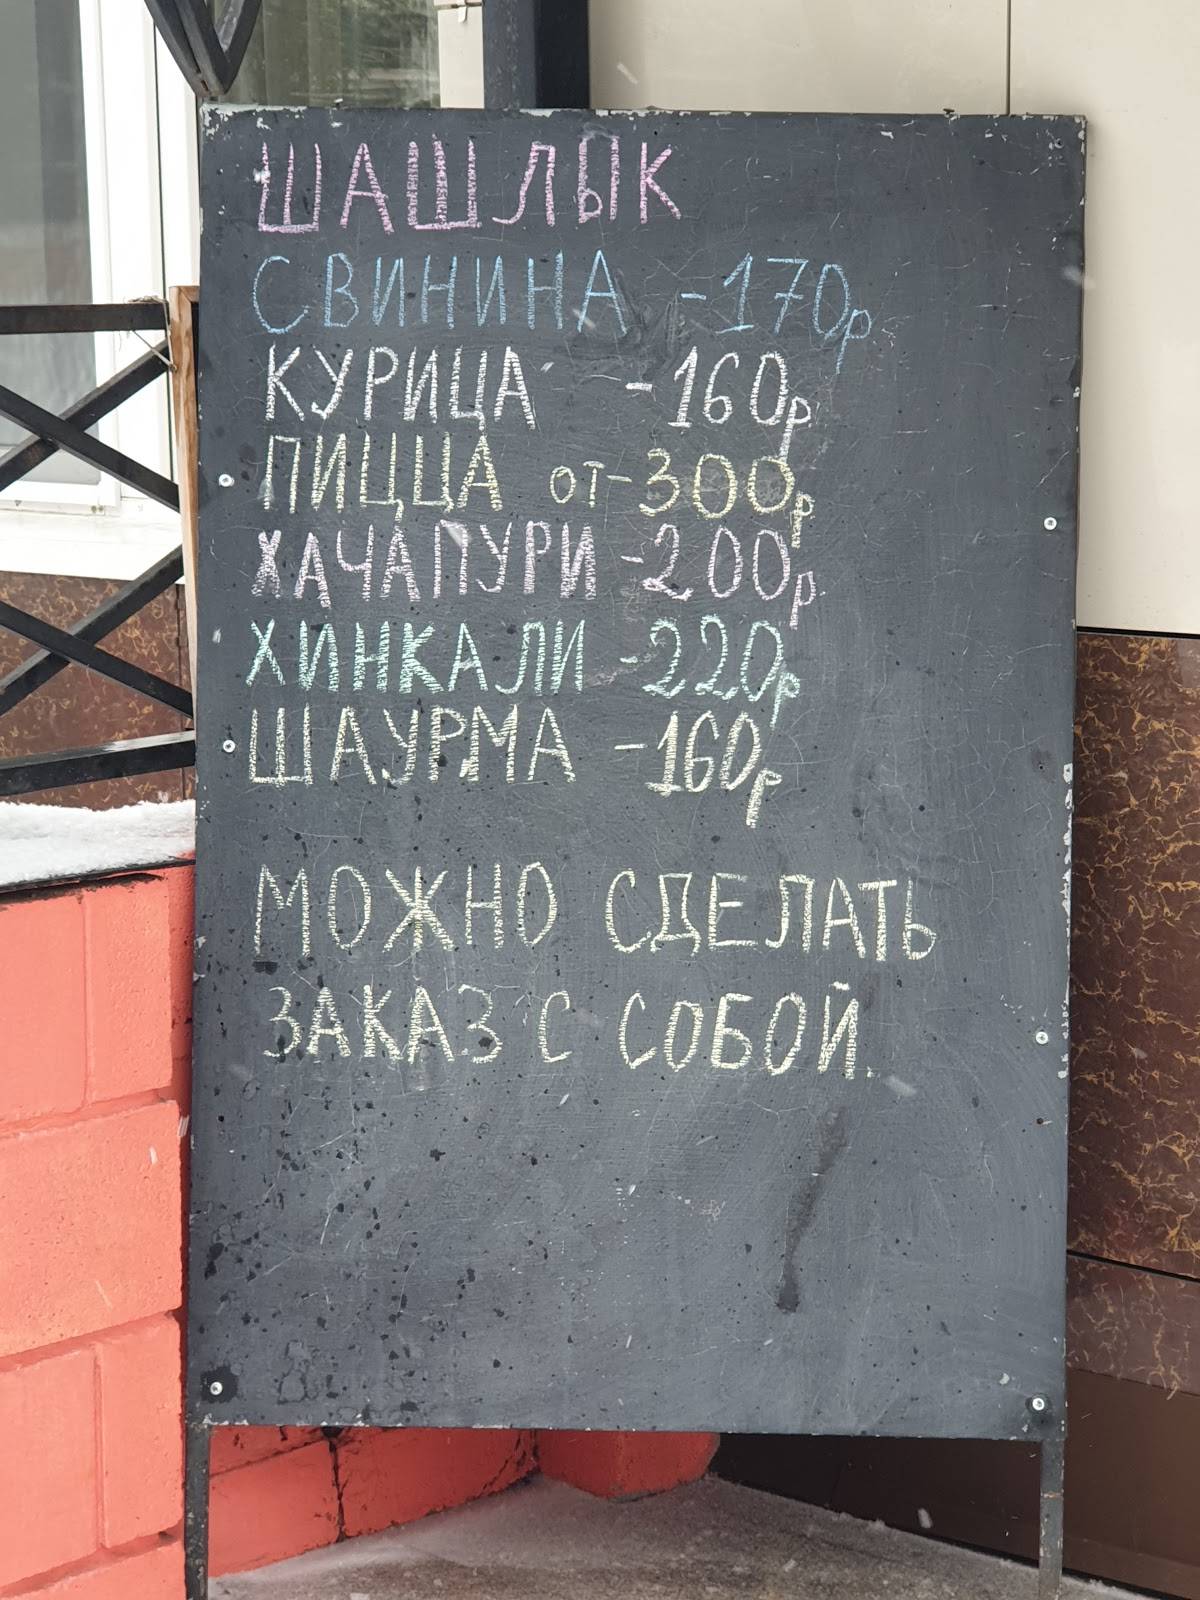 ШАШЛЫК
СВИНИНА -170р
КУРИЦА -160р
ПИЦЦА от-300р
ХАЧАПУРИ -200р
ХИНКАЛИ -220р
ШАУРМА -160р
МОЖНО СДЕЛАТЬ
ЗАКАЗ С СОБОЙ.